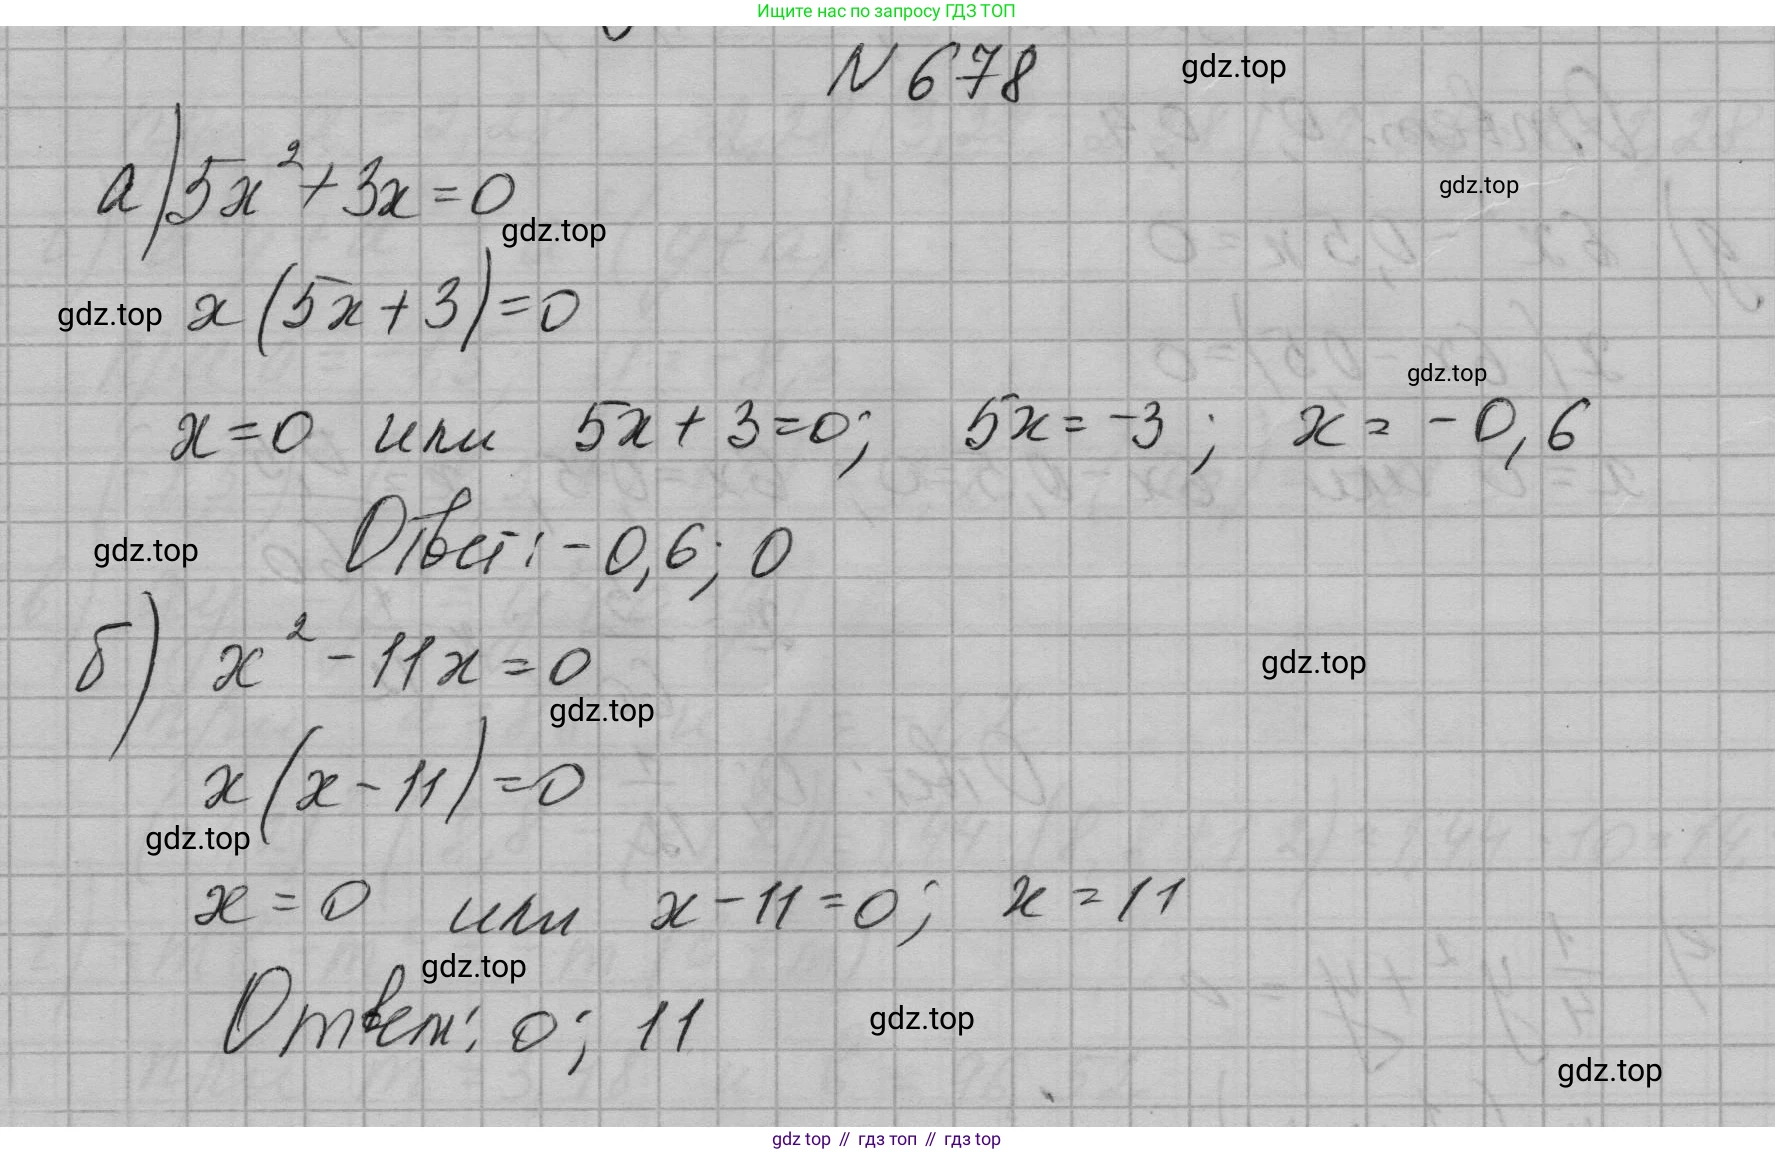 Ищите нас по запросу ГДЗ ТОП
N 678
gdz.top
а) 5x² + 3x = 0
gdz.top
gdz.top
x(5x + 3) = 0
gdz.top
gdz.top
x = 0 или 5x + 3 = 0; 5x = -3; x = -0,6
Ответ: -0,6; 0
gdz.top
б) x² - 11x = 0
gdz.top
gdz.top
x(x - 11) = 0
gdz.top
x = 0 или x - 11 = 0; x = 11
gdz.top
Ответ: 0; 11
gdz.top
gdz.top
gdz top // гдз топ // гдз top